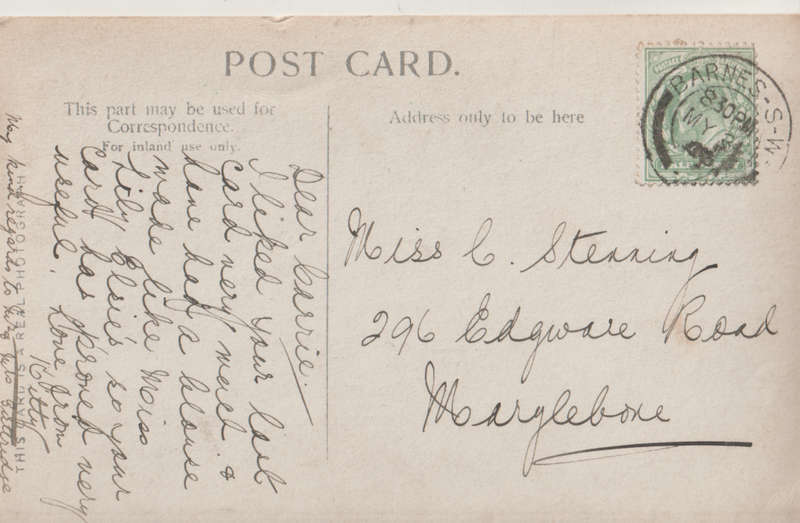 POST CARD.
This part may be used for
Correspondence.
For inland use only.
Address only to be here
BARNES-S-W.
8.30PM
MY
Dear Carrie.
I liked your last
card very much &
have had a blouse
made like Miss
Lily Elsie's so your
card has proved very
useful. Love from
Kitty
My kind regards to
THIS CARD IS A REAL PHOTOGRAPH
Miss C. Stenning
296 Edgware Road
Marylebone